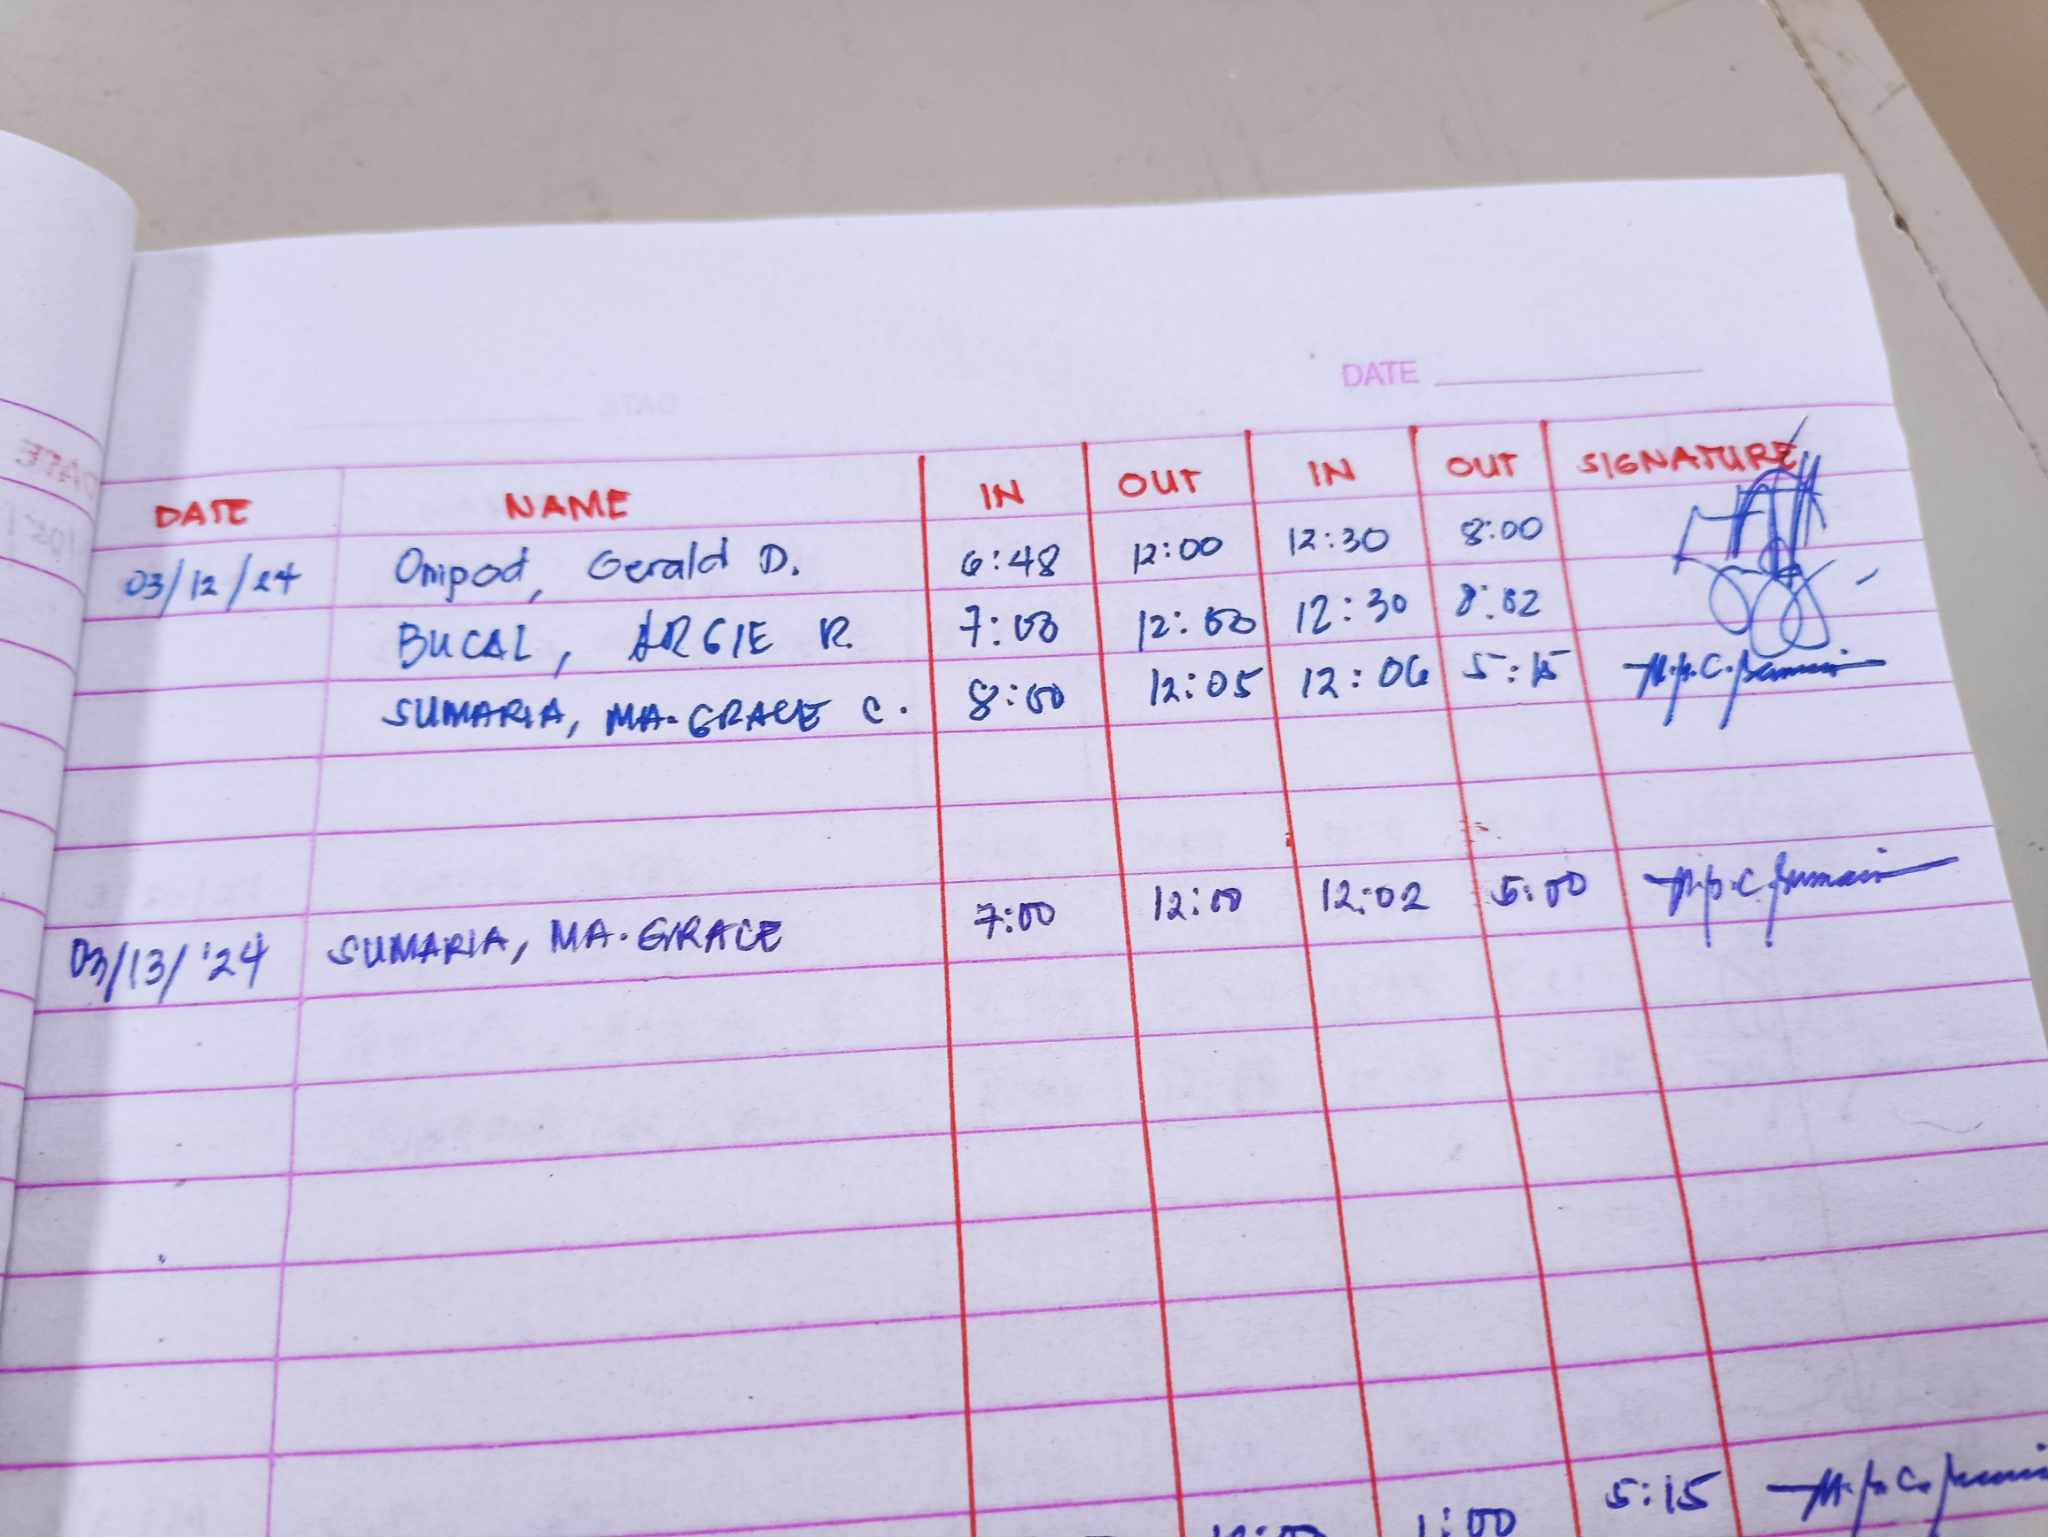 DATE
DATE NAME IN OUT IN OUT SIGNATURE
03/12/24 Onipod, Gerald D. 6:48 12:00 12:30 8:00
BUCAL, ARGIE R. 7:00 12:00 12:30 8:02
SUMARIA, MA. GRACE C. 8:00 12:05 12:06 5:15
03/13/'24 SUMARIA, MA. GRACE 7:00 12:00 12:02 5:00
1:00 5:15